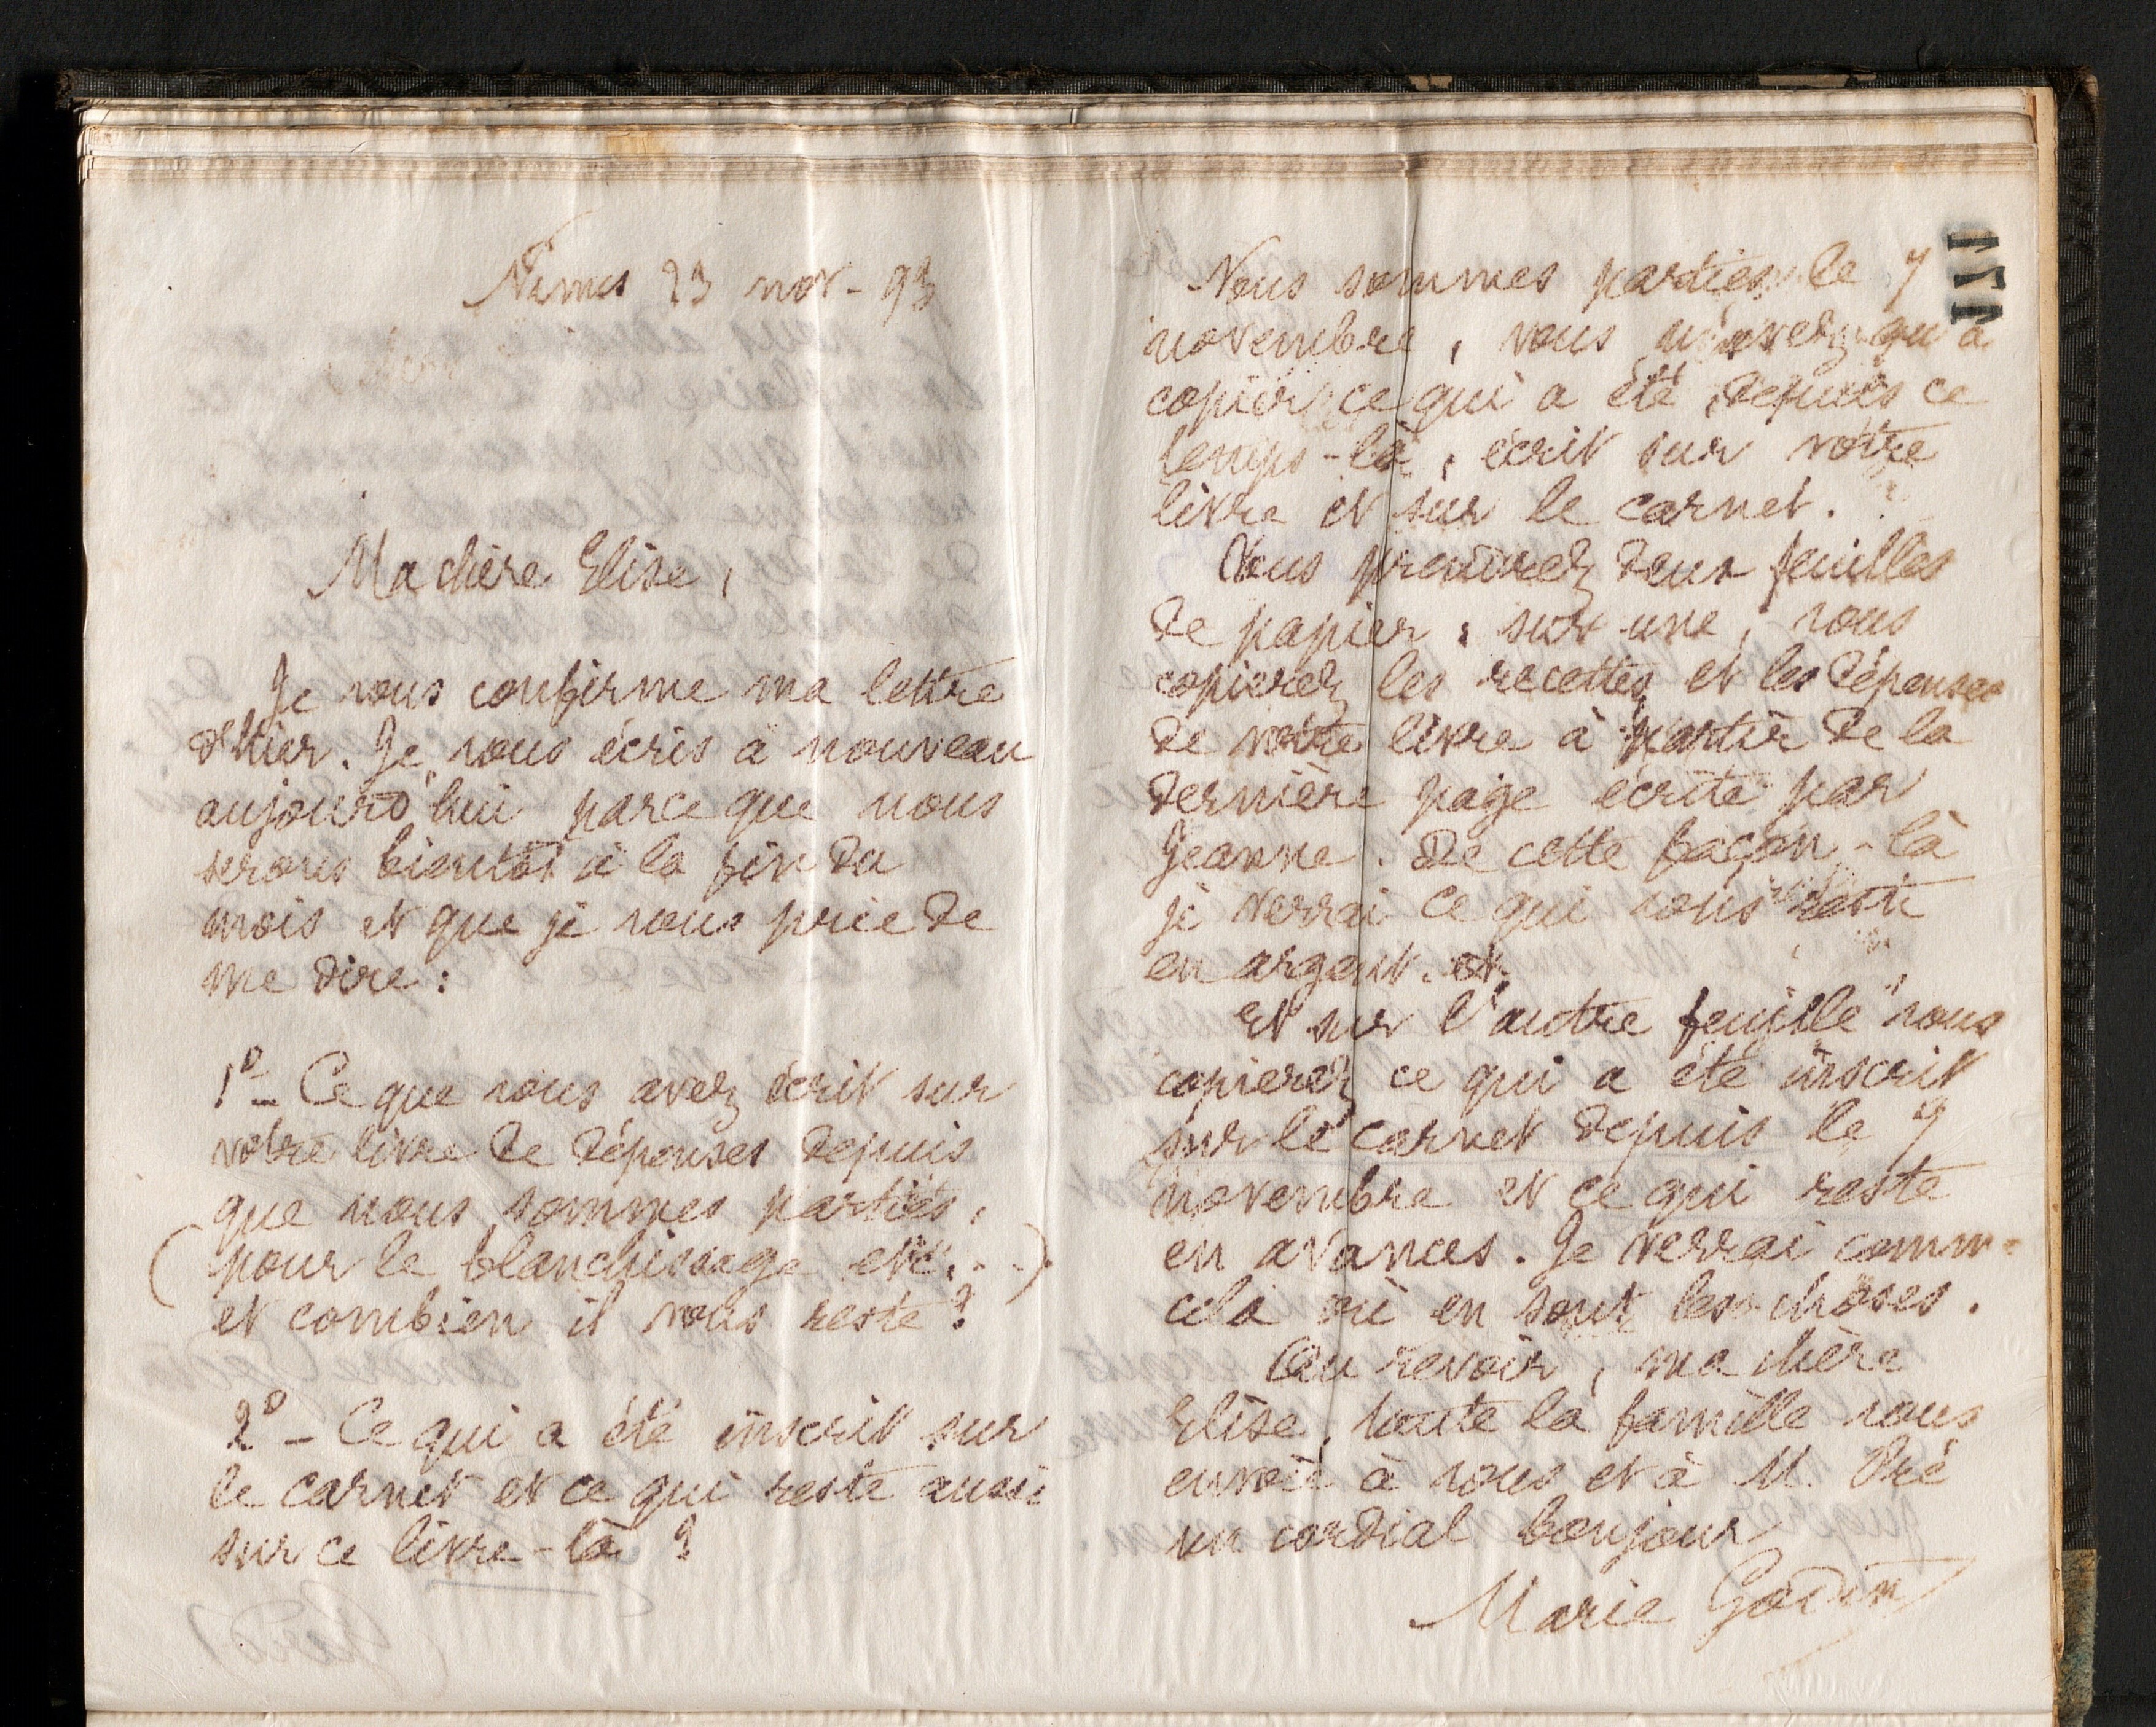 Nimes 23 nov - 93
Ma chère Elise,
Je vous confirme ma lettre
d'hier. Je vous écris à nouveau
aujourd'hui parce que nous
serons bientôt à la fin du
mois et que je vous prie de
me dire :
1º - Ce que vous avez écrit sur
votre livre de dépenses depuis
que nous sommes parties,
(pour le blanchissage etc. . .)
et combien il vous reste ?
2º - Ce qui a été inscrit sur
le carnet et ce qui reste aussi
sur ce livre-là ?
151
Nous sommes parties le 7
novembre, vous n'avez qu'à
copier ce qui a été, depuis ce
temps-là, écrit sur votre
livre et sur le carnet.
Vous prendrez deux feuilles
de papier, sur une, vous
copierez les recettes et les dépenses
de votre livre à partir de la
dernière page écrite par
Jeanne. De cette façon-là
je verrai ce qui vous reste
en argent. et
Et sur l'autre feuille vous
copierez ce qui a été inscrit
sur le carnet depuis le
novembre et ce qui reste
en avances. Je verrai comm
cela où en sont les choses.
Au revoir, ma chère
Elise, toute la famille vous
envoie à vous et à M.
un cordial bonjour
Marie Godin